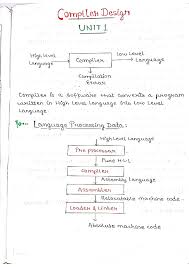 Compiler Design
UNIT 1
High Level Language
Compiler
Low Level Language
Compilation Error
Compiler is a Software that converts a program
written in High Level Language into Low Level
Language.
Language Processing Data:
High Level Language
Pre processor
Pure H.L.L
Compiler
Assembly Language
Assembler
Relocatable machine code
Loader & Linker
Absolute machine code